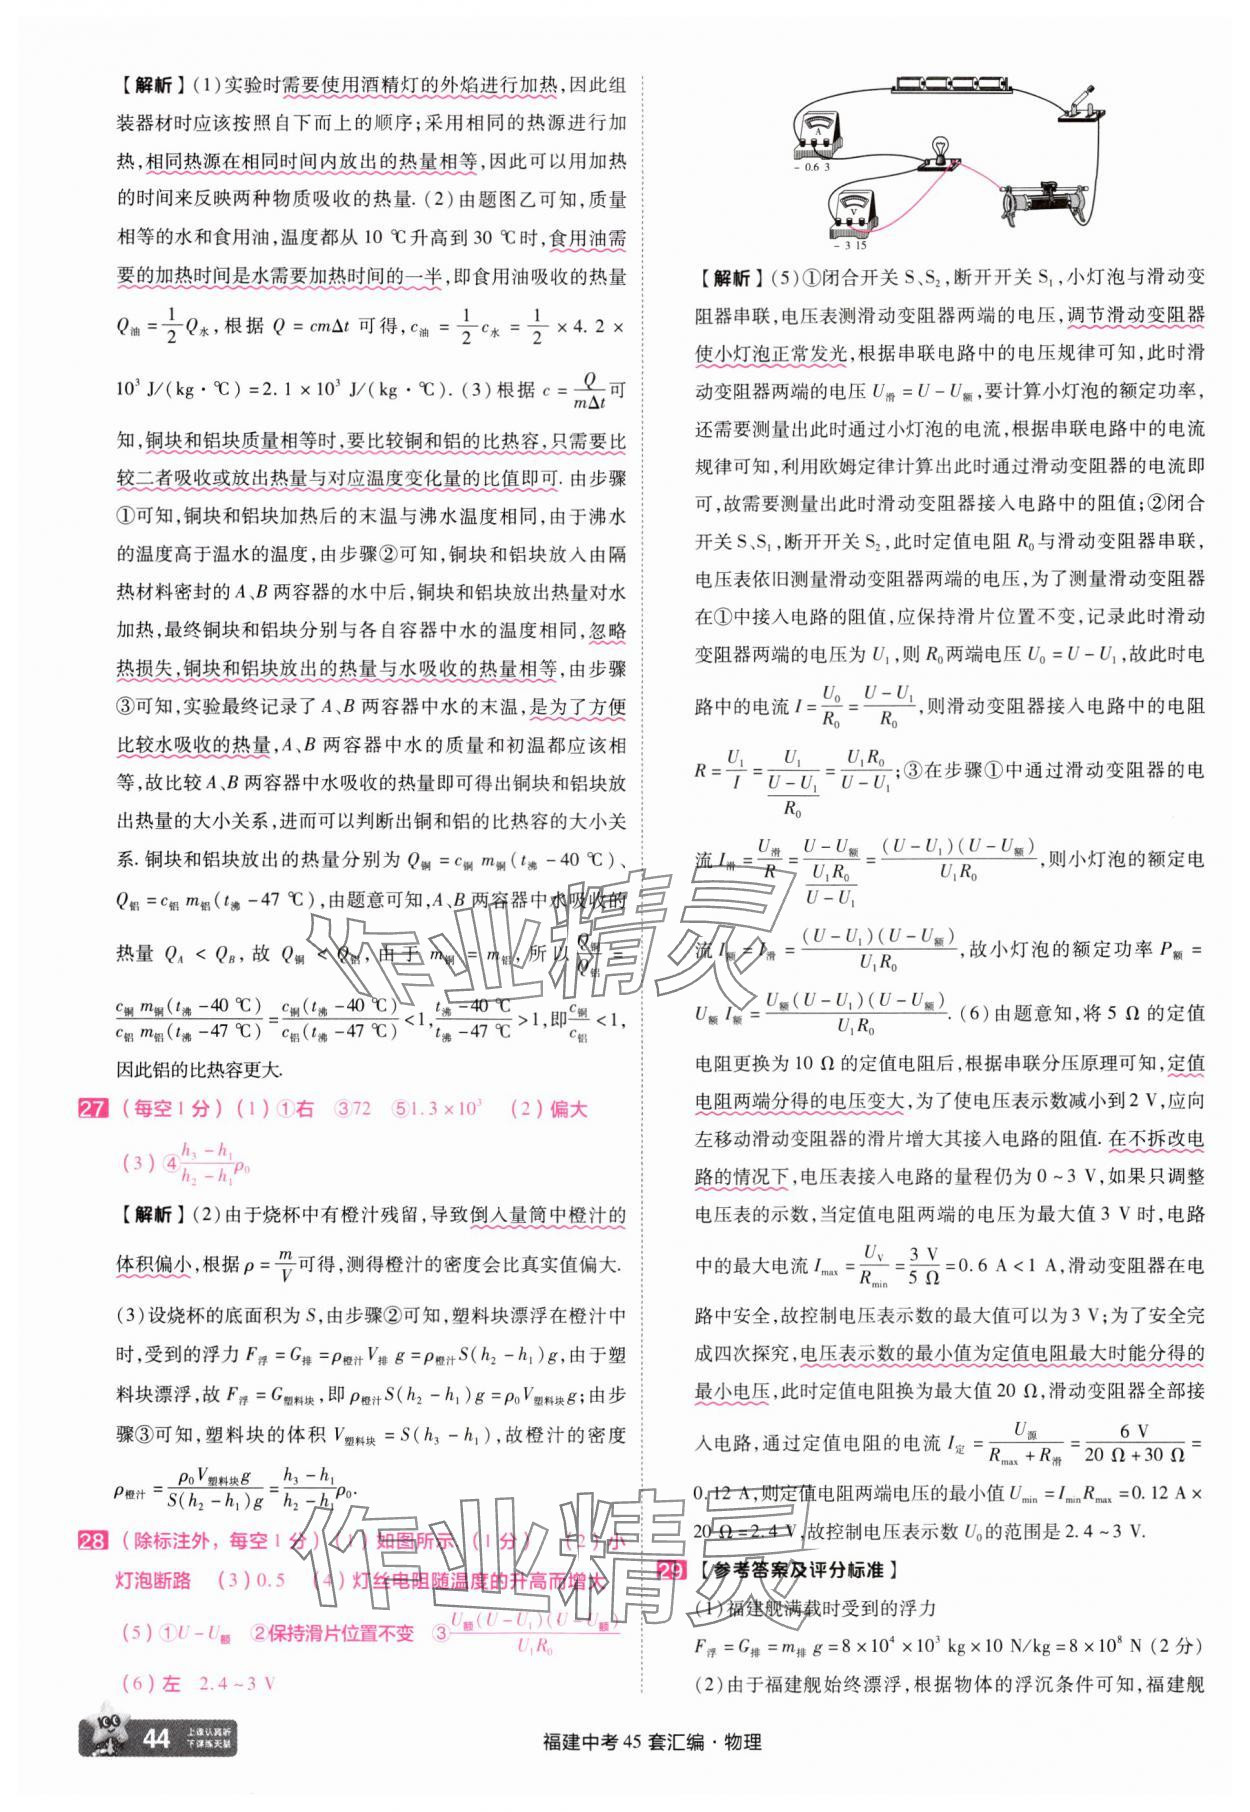 【解析】(1)实验时需要使用酒精灯的外焰进行加热,因此组
装器材时应该按照自下而上的顺序;采用相同的热源进行加
热,相同热源在相同时间内放出的热量相等,因此可以用加热
的时间来反映两种物质吸收的热量.(2)由题图乙可知,质量
相等的水和食用油,温度都从 10 ℃升高到 30 ℃时,食用油需
要的加热时间是水需要加热时间的一半,即食用油吸收的热量
Q油 = 1/2 Q水,根据 Q = cmΔt 可得,c油 = 1/2 c水 = 1/2 × 4.2 ×
10³ J/(kg·℃) = 2.1 × 10³ J/(kg·℃).(3)根据 c = Q/(mΔt) 可
知,铜块和铝块质量相等时,要比较铜和铝的比热容,只需要比
较二者吸收或放出热量与对应温度变化量的比值即可.由步骤
①可知,铜块和铝块加热后的末温与沸水温度相同,由于沸水
的温度高于温水的温度,由步骤②可知,铜块和铝块放入由隔
热材料密封的 A、B 两容器的水中后,铜块和铝块放出热量对水
加热,最终铜块和铝块分别与各自容器中水的温度相同,忽略
热损失,铜块和铝块放出的热量与水吸收的热量相等,由步骤
③可知,实验最终记录了 A、B 两容器中水的末温,是为了方便
比较水吸收的热量,A、B 两容器中水的质量和初温都应该相
等,故比较 A、B 两容器中水吸收的热量即可得出铜块和铝块放
出热量的大小关系,进而可以判断出铜和铝的比热容的大小关
系.铜块和铝块放出的热量分别为 Q铜 = c铜 m铜(t沸 - 40 ℃)、
Q铝 = c铝 m铝(t沸 - 47 ℃),由题意可知,A、B 两容器中水吸收的
热量 Q_A < Q_B,故 Q铜 < Q铝,由于 m铜 = m铝,所以 Q铜/Q铝 =
c铜 m铜(t沸 - 40 ℃)/c铝 m铝(t沸 - 47 ℃) = c铜(t沸 - 40 ℃)/c铝(t沸 - 47 ℃) < 1,(t沸 - 40 ℃)/(t沸 - 47 ℃) > 1,即 c铜/c铝 < 1,
因此铝的比热容更大.
27 (每空 1 分)(1)①右 ③72 ⑤1.3 × 10³ (2)偏大
(3)④(h₃ - h₁)/(h₂ - h₁) ρ₀
【解析】(2)由于烧杯中有橙汁残留,导致倒入量筒中橙汁的
体积偏小,根据 ρ = m/V 可得,测得橙汁的密度会比真实值偏大.
(3)设烧杯的底面积为 S,由步骤②可知,塑料块漂浮在橙汁中
时,受到的浮力 F浮 = G排 = ρ橙汁V排 g = ρ橙汁S(h₂ - h₁)g,由于塑
料块漂浮,故 F浮 = G塑料块,即 ρ橙汁S(h₂ - h₁)g = ρ₀V塑料块g;由步
骤③可知,塑料块的体积 V塑料块 = S(h₃ - h₁),故橙汁的密度
ρ橙汁 = ρ₀V塑料块g/(S(h₂ - h₁)g) = (h₃ - h₁)/(h₂ - h₁) ρ₀.
28 (除标注外,每空 1 分)(1)如图所示(1 分) (2)小
灯泡断路 (3)0.5 (4)灯丝电阻随温度的升高而增大
(5)①U - U额 ②保持滑片位置不变 ③U额(U - U₁)(U - U额)/(U₁R₀)
(6)左 2.4~3 V
A
- 0.6 3
V
- 3 15
【解析】(5)①闭合开关 S、S₂,断开开关 S₁,小灯泡与滑动变
阻器串联,电压表测滑动变阻器两端的电压,调节滑动变阻器
使小灯泡正常发光,根据串联电路中的电压规律可知,此时滑
动变阻器两端的电压 U滑 = U - U额,要计算小灯泡的额定功率,
还需要测量出此时通过小灯泡的电流,根据串联电路中的电流
规律可知,利用欧姆定律计算出此时通过滑动变阻器的电流即
可,故需要测量出此时滑动变阻器接入电路中的阻值;②闭合
开关 S、S₁,断开开关 S₂,此时定值电阻 R₀与滑动变阻器串联,
电压表依旧测量滑动变阻器两端的电压,为了测量滑动变阻器
在①中接入电路的阻值,应保持滑片位置不变,记录此时滑动
变阻器两端的电压为 U₁,则 R₀两端电压 U₀ = U - U₁,故此时电
路中的电流 I = U₀/R₀ = (U - U₁)/R₀,则滑动变阻器接入电路中的电阻
R = U₁/I = U₁/((U - U₁)/R₀) = U₁R₀/(U - U₁);③在步骤①中通过滑动变阻器的电
流 I滑 = U滑/R = (U - U额)/(U₁R₀/(U - U₁)) = (U - U₁)(U - U额)/(U₁R₀),则小灯泡的额定电
流 I额 = I滑 = (U - U₁)(U - U额)/(U₁R₀),故小灯泡的额定功率 P额 =
U额 I额 = U额(U - U₁)(U - U额)/(U₁R₀).(6)由题意知,将 5 Ω 的定值
电阻更换为 10 Ω 的定值电阻后,根据串联分压原理可知,定值
电阻两端分得的电压变大,为了使电压表示数减小到 2 V,应向
左移动滑动变阻器的滑片增大其接入电路的阻值.在不拆改电
路的情况下,电压表接入电路的量程仍为 0~3 V,如果只调整
电压表的示数,当定值电阻两端的电压为最大值 3 V 时,电路
中的最大电流 I_max = U_V/R_min = 3 V/5 Ω = 0.6 A < 1 A,滑动变阻器在电
路中安全,故控制电压表示数的最大值可以为 3 V;为了安全完
成四次探究,电压表示数的最小值为定值电阻最大时能分得的
最小电压,此时定值电阻换为最大值 20 Ω,滑动变阻器全部接
入电路,通过定值电阻的电流 I定 = U源/(R_max + R滑) = 6 V/(20 Ω + 30 Ω) =
0.12 A,则定值电阻两端电压的最小值 U_min = I_min R_max = 0.12 A ×
20 Ω = 2.4 V,故控制电压表示数 U₀的范围是 2.4~3 V.
29 【参考答案及评分标准】
(1)福建舰满载时受到的浮力
F浮 = G排 = m排 g = 8 × 10⁴ × 10³ kg × 10 N/kg = 8 × 10⁸ N (2 分)
(2)由于福建舰始终漂浮,根据物体的浮沉条件可知,福建舰
作业精灵
作业精灵
100
44
上课认真听
下课练天星
福建中考 45 套汇编·物理